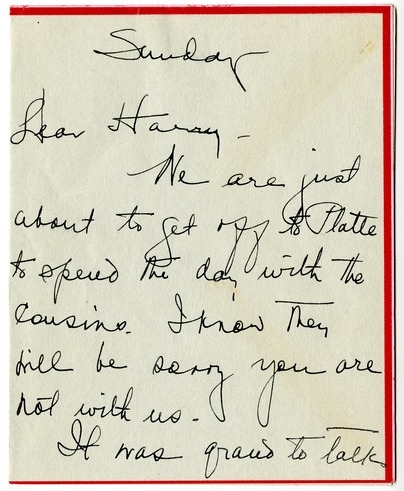 Sunday
Dear Harry -
We are just
about to get off to Platte
to spend the day with the
Cousins. I know they
will be sorry you are
not with us.
It was grand to talk